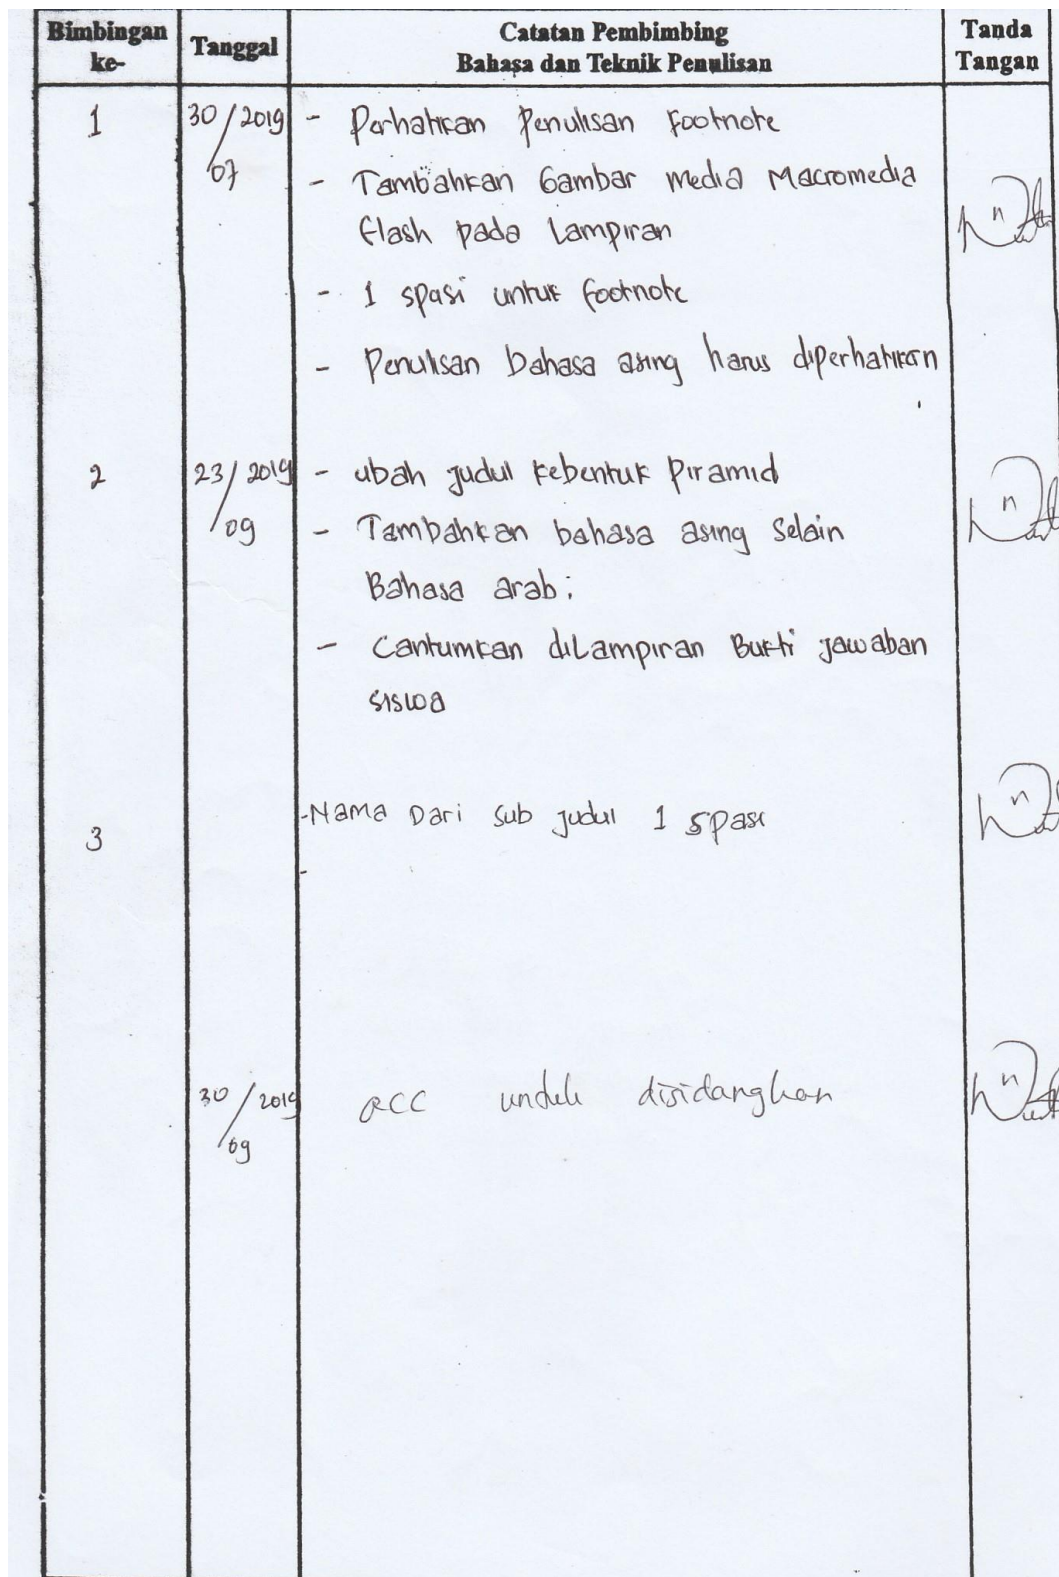 Bimbingan ke-
Tanggal
Catatan Pembimbing
Bahasa dan Teknik Penulisan
Tanda Tangan
1
30/2019
/07
- Perhatikan Penulisan Footnote
- Tambahkan Gambar media Macromedia
flash pada Lampiran
- 1 spasi untuk footnote
- Penulisan bahasa asing harus diperhatikan
2
23/2019
/09
- ubah judul kebentuk piramid
- Tambahkan bahasa asing selain
Bahasa arab;
- Cantumkan diLampiran Bukti jawaban
siswa
3
-Nama Dari sub judul 1 spasi
30/2019
/09
acc untuk disidangkan